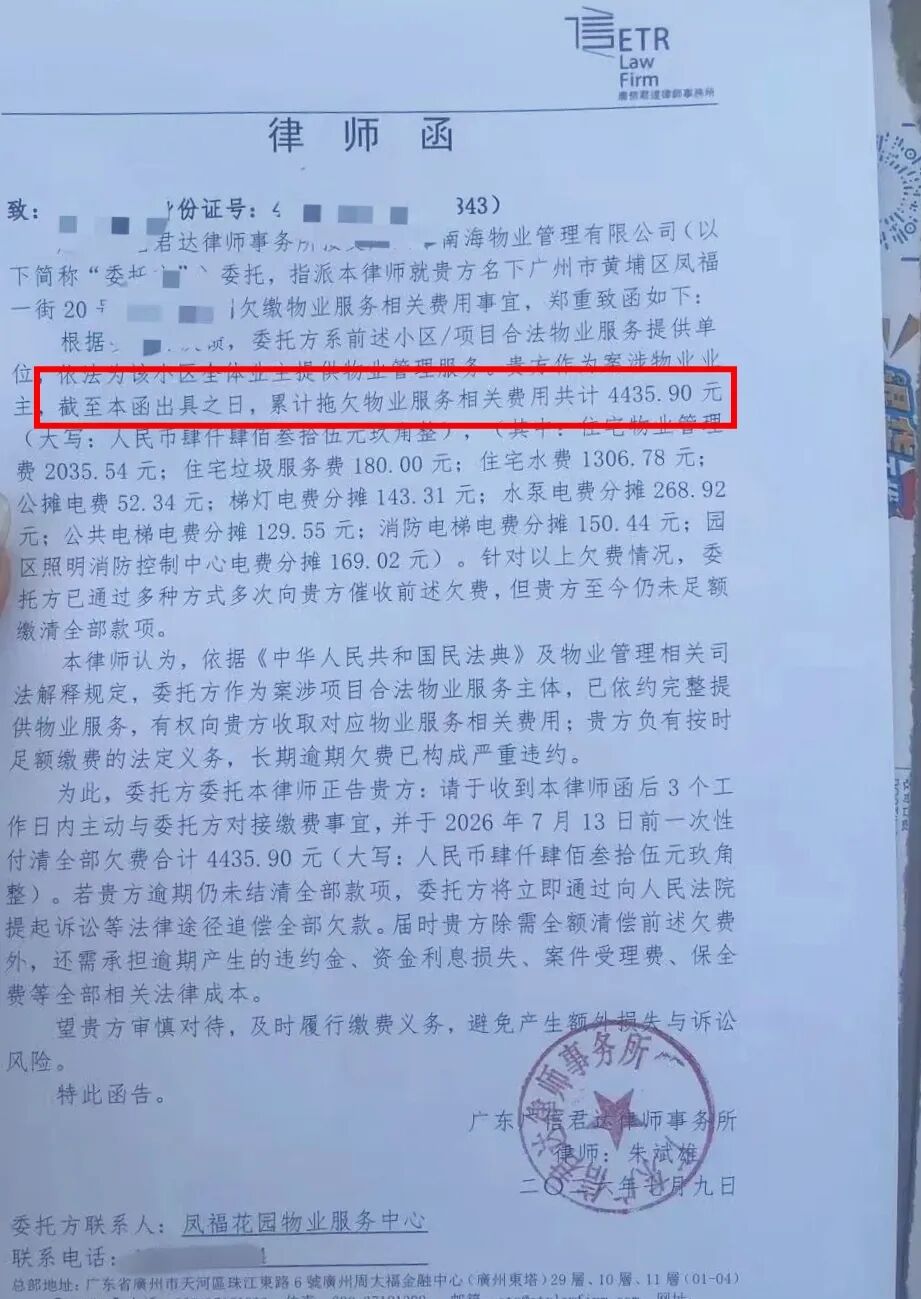 信ETR
Law
Firm
廣信君達律師事務所
律 师 函
致： 份证号： 4 343）
君达律师事务所 南海物业管理有限公司（以
下简称“委托 ”）委托，指派本律师就贵方名下广州市黄埔区凤福
一街 20 欠缴物业服务相关费用事宜，郑重致函如下：
根据 ，委托方系前述小区/项目合法物业服务提供单
位，依法为该小区全体业主提供物业管理服务。贵方作为案涉物业业
主，截至本函出具之日，累计拖欠物业服务相关费用共计 4435.90 元
（大写：人民币肆仟肆佰叁拾伍元玖角整），（其中：住宅物业管理
费 2035.54 元；住宅垃圾服务费 180.00 元；住宅水费 1306.78 元；
公摊电费 52.34 元；梯灯电费分摊 143.31 元；水泵电费分摊 268.92
元；公共电梯电费分摊 129.55 元；消防电梯电费分摊 150.44 元；园
区照明消防控制中心电费分摊 169.02 元）。针对以上欠费情况，委
托方已通过多种方式多次向贵方催收前述欠费，但贵方至今仍未足额
缴清全部款项。
本律师认为，依据《中华人民共和国民法典》及物业管理相关司
法解释规定，委托方作为案涉项目合法物业服务主体，已依约完整提
供物业服务，有权向贵方收取对应物业服务相关费用；贵方负有按时
足额缴费的法定义务，长期逾期欠费已构成严重违约。
为此，委托方委托本律师正告贵方：请于收到本律师函后 3 个工
作日内主动与委托方对接缴费事宜，并于 2026 年 7 月 13 日前一次性
付清全部欠费合计 4435.90 元（大写：人民币肆仟肆佰叁拾伍元玖角
整）。若贵方逾期仍未结清全部款项，委托方将立即通过向人民法院
提起诉讼等法律途径追偿全部欠款。届时贵方除需全额清偿前述欠费
外，还需承担逾期产生的违约金、资金利息损失、案件受理费、保全
费等全部相关法律成本。
望贵方审慎对待，及时履行缴费义务，避免产生额外损失与诉讼
风险。
特此函告。
广东广信君达律师事务所
律师：朱斌雄
二〇二六年七月九日
委托方联系人：凤福花园物业服务中心
联系电话：
总部地址：广东省廣州市天河區珠江東路 6 號廣州周大福金融中心（廣州東塔）29 層、10 層、11 層（01-04）